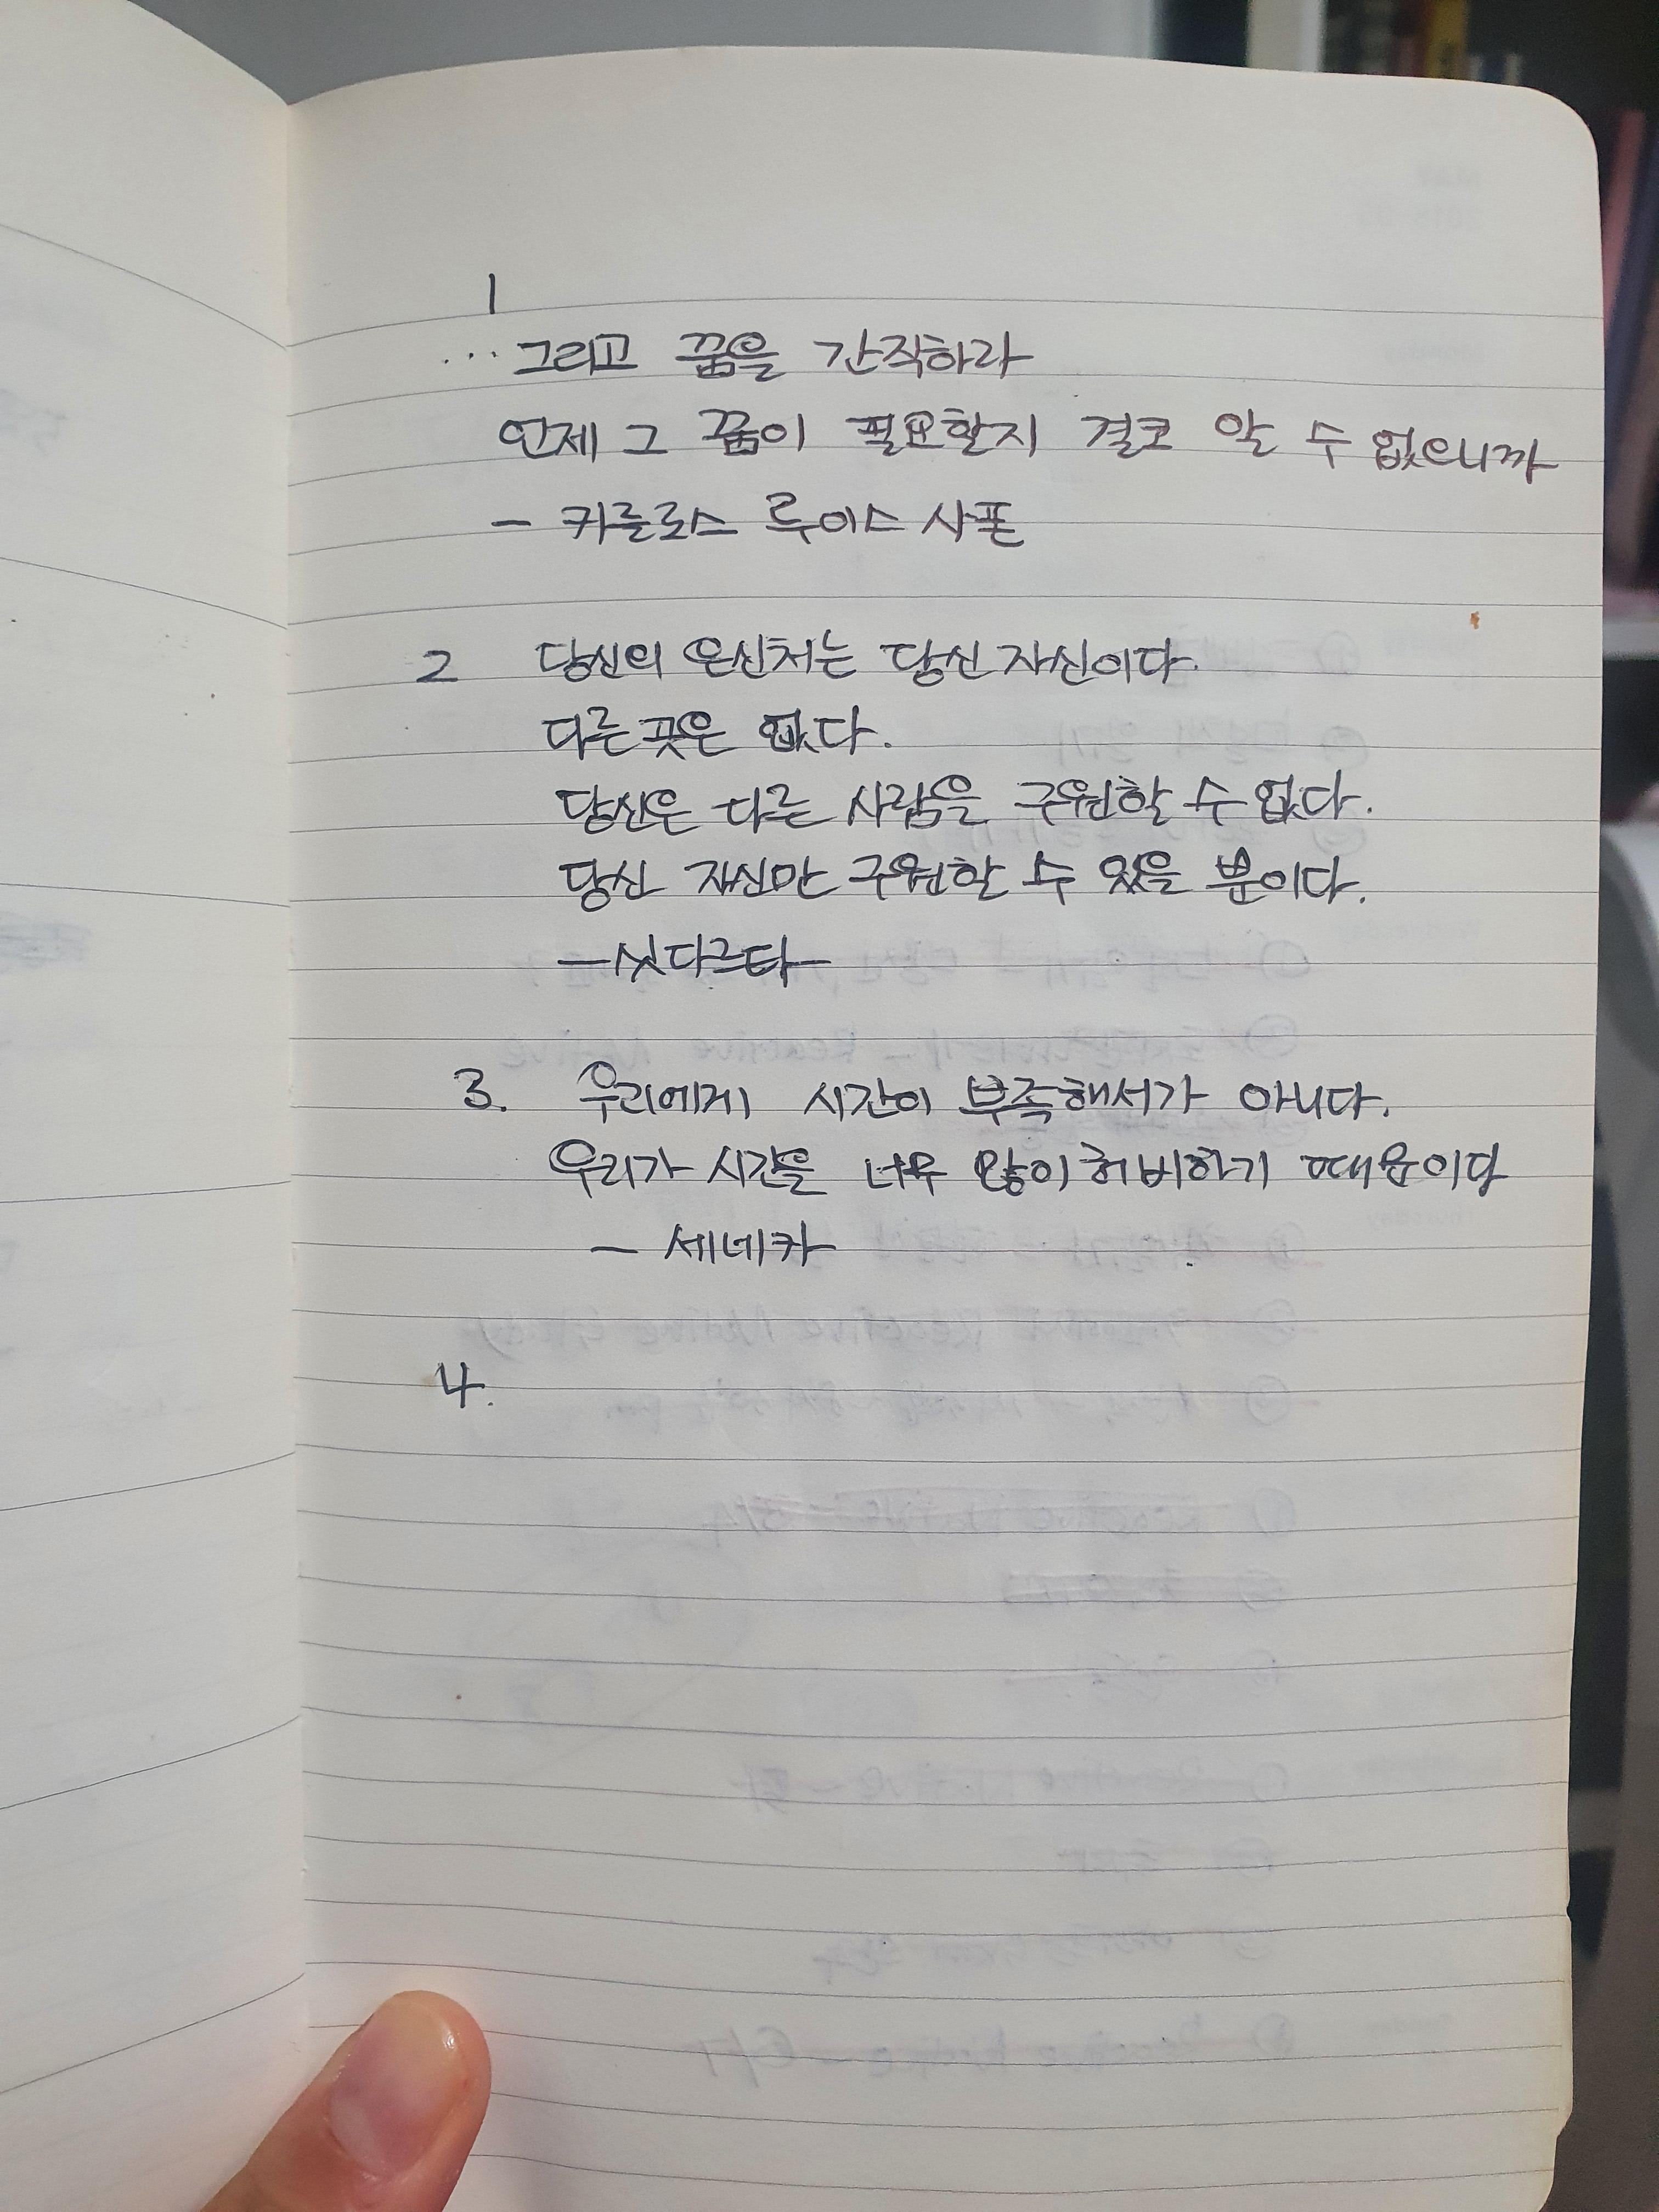 1
...그리고 꿈을 간직하라
언제 그 꿈이 필요할지 결코 알 수 없으니까
- 카를로스 루이스 사폰
2 당신의 은신처는 당신 자신이다.
다른 곳은 없다.
당신은 다른 사람을 구원할 수 없다.
당신 자신만 구원할 수 있을 뿐이다.
-싯다르타-
3. 우리에게 시간이 부족해서가 아니다.
우리가 시간을 너무 많이 허비하기 때문이다
- 세네카
4.